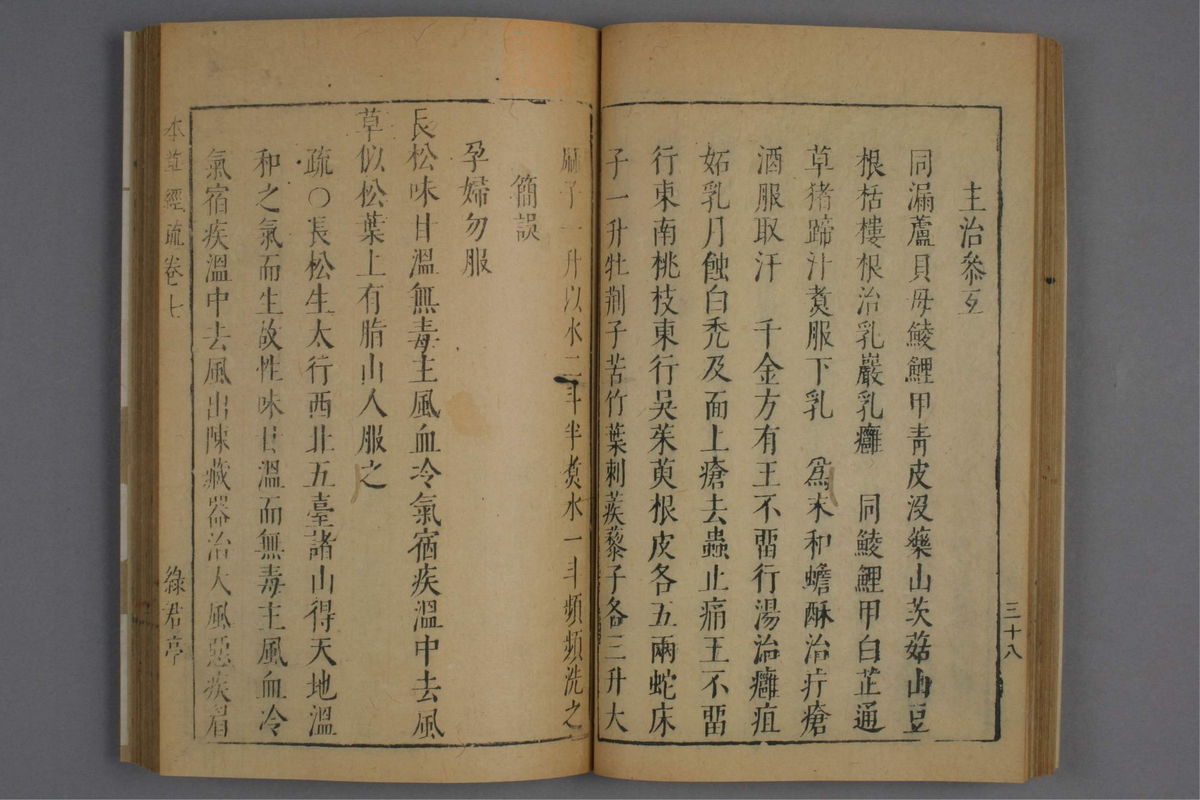 主治叅互
同漏蘆貝母鯪鯉甲青皮沒藥山茨菇山豆
根栝樓根治乳巖乳癰　同鯪鯉甲白芷通
草猪蹄汁煑服下乳　爲末和蟾酥治疔瘡
酒服取汗　千金方有王不畱行湯治癰疽
妬乳月蝕白禿及面上瘡去蟲止痛王不畱
行東南桃枝東行吳茱萸根皮各五兩蛇床
子一升牡荆子苦竹葉刺蒺藜子各三升大
三十八
麻子一升以水二斗半煑水一斗頻頻洗之
簡誤
孕婦勿服
長松味甘溫無毒主風血冷氣宿疾溫中去風
草似松葉上有脂山人服之
疏〇長松生太行西北五臺諸山得天地溫
和之氣而生故性味甘溫而無毒主風血冷
氣宿疾溫中去風出陳藏器治大風惡疾眉
本草經疏卷七
綠君亭